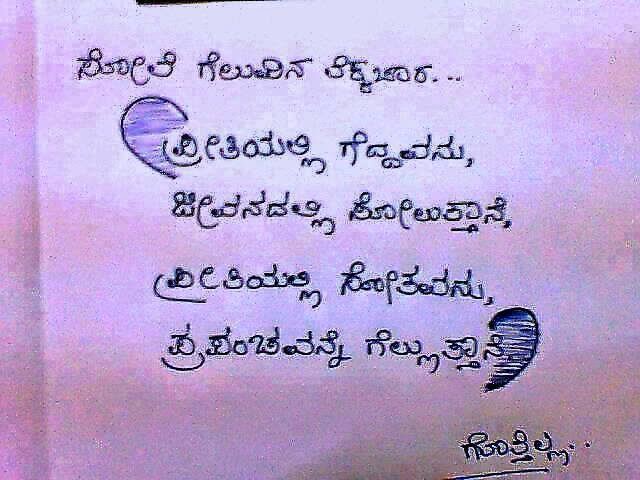 ಸೋಲೆ ಗೆಲುವಿನ ಲೆಕ್ಕಚಾರ...
ಪ್ರೀತಿಯಲ್ಲಿ ಗೆದ್ದವನು,
ಜೀವನದಲ್ಲಿ ಸೋಲುತ್ತಾನೆ,
ಪ್ರೀತಿಯಲ್ಲಿ ಸೋತವನು,
ಪ್ರಪಂಚವನ್ನೆ ಗೆಲ್ಲುತ್ತಾನೆ
ಗೊತ್ತಿಲ್ಲ..